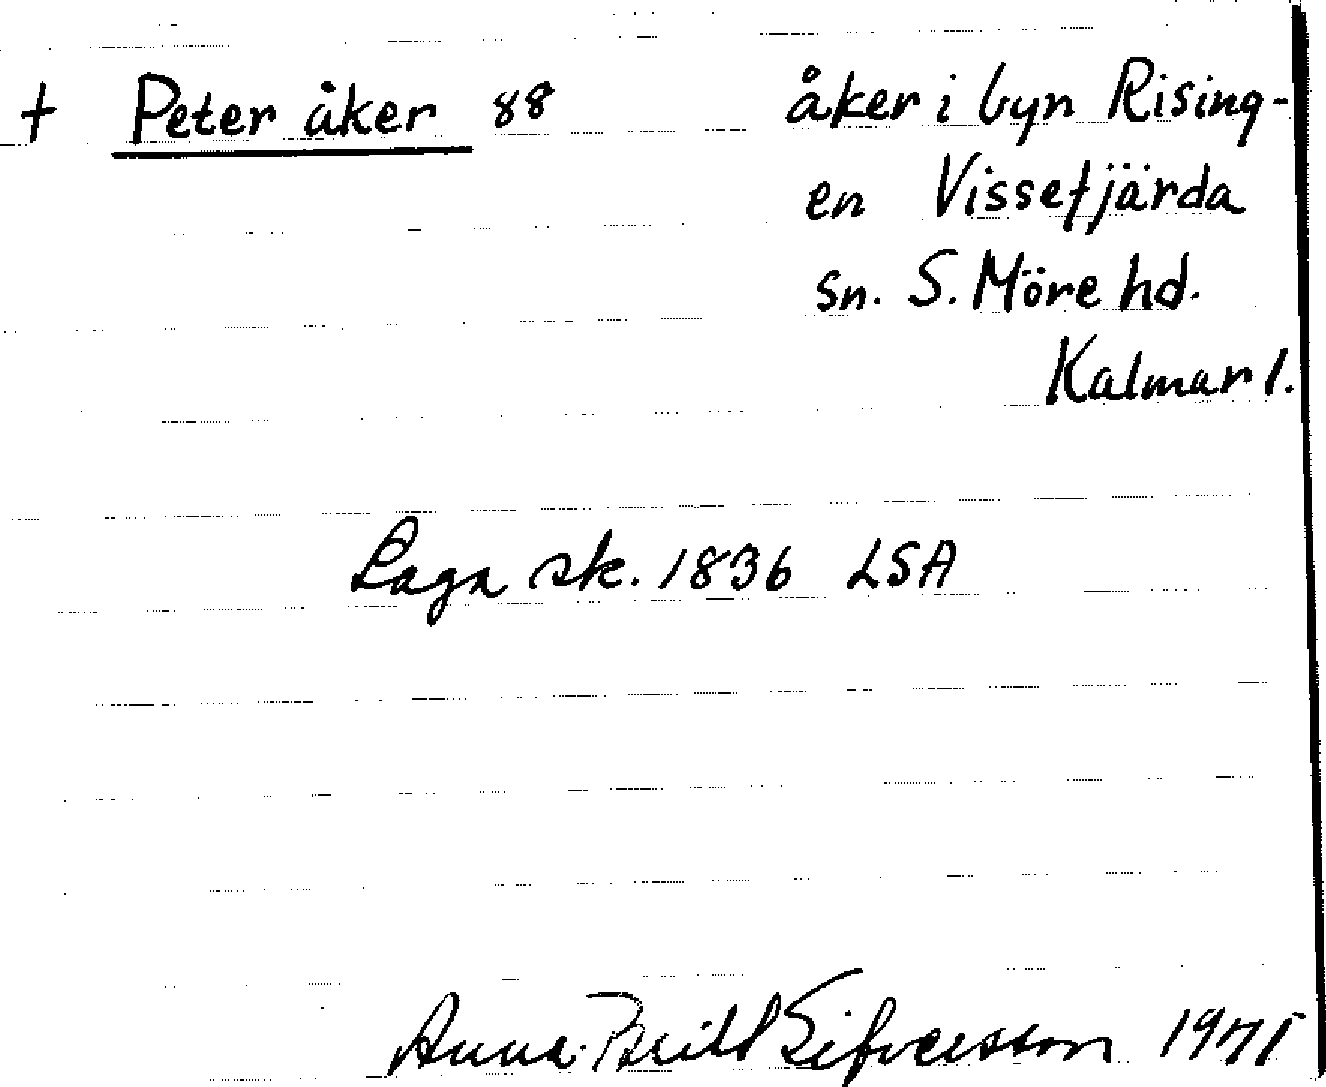 † Peter åker 88 åker i byn Rising-
en Vissefjärda
sn. S. Möre hd.
Kalmar l.
Laga sk. 1836 LSA
Anna-Britt Sifversson 1971